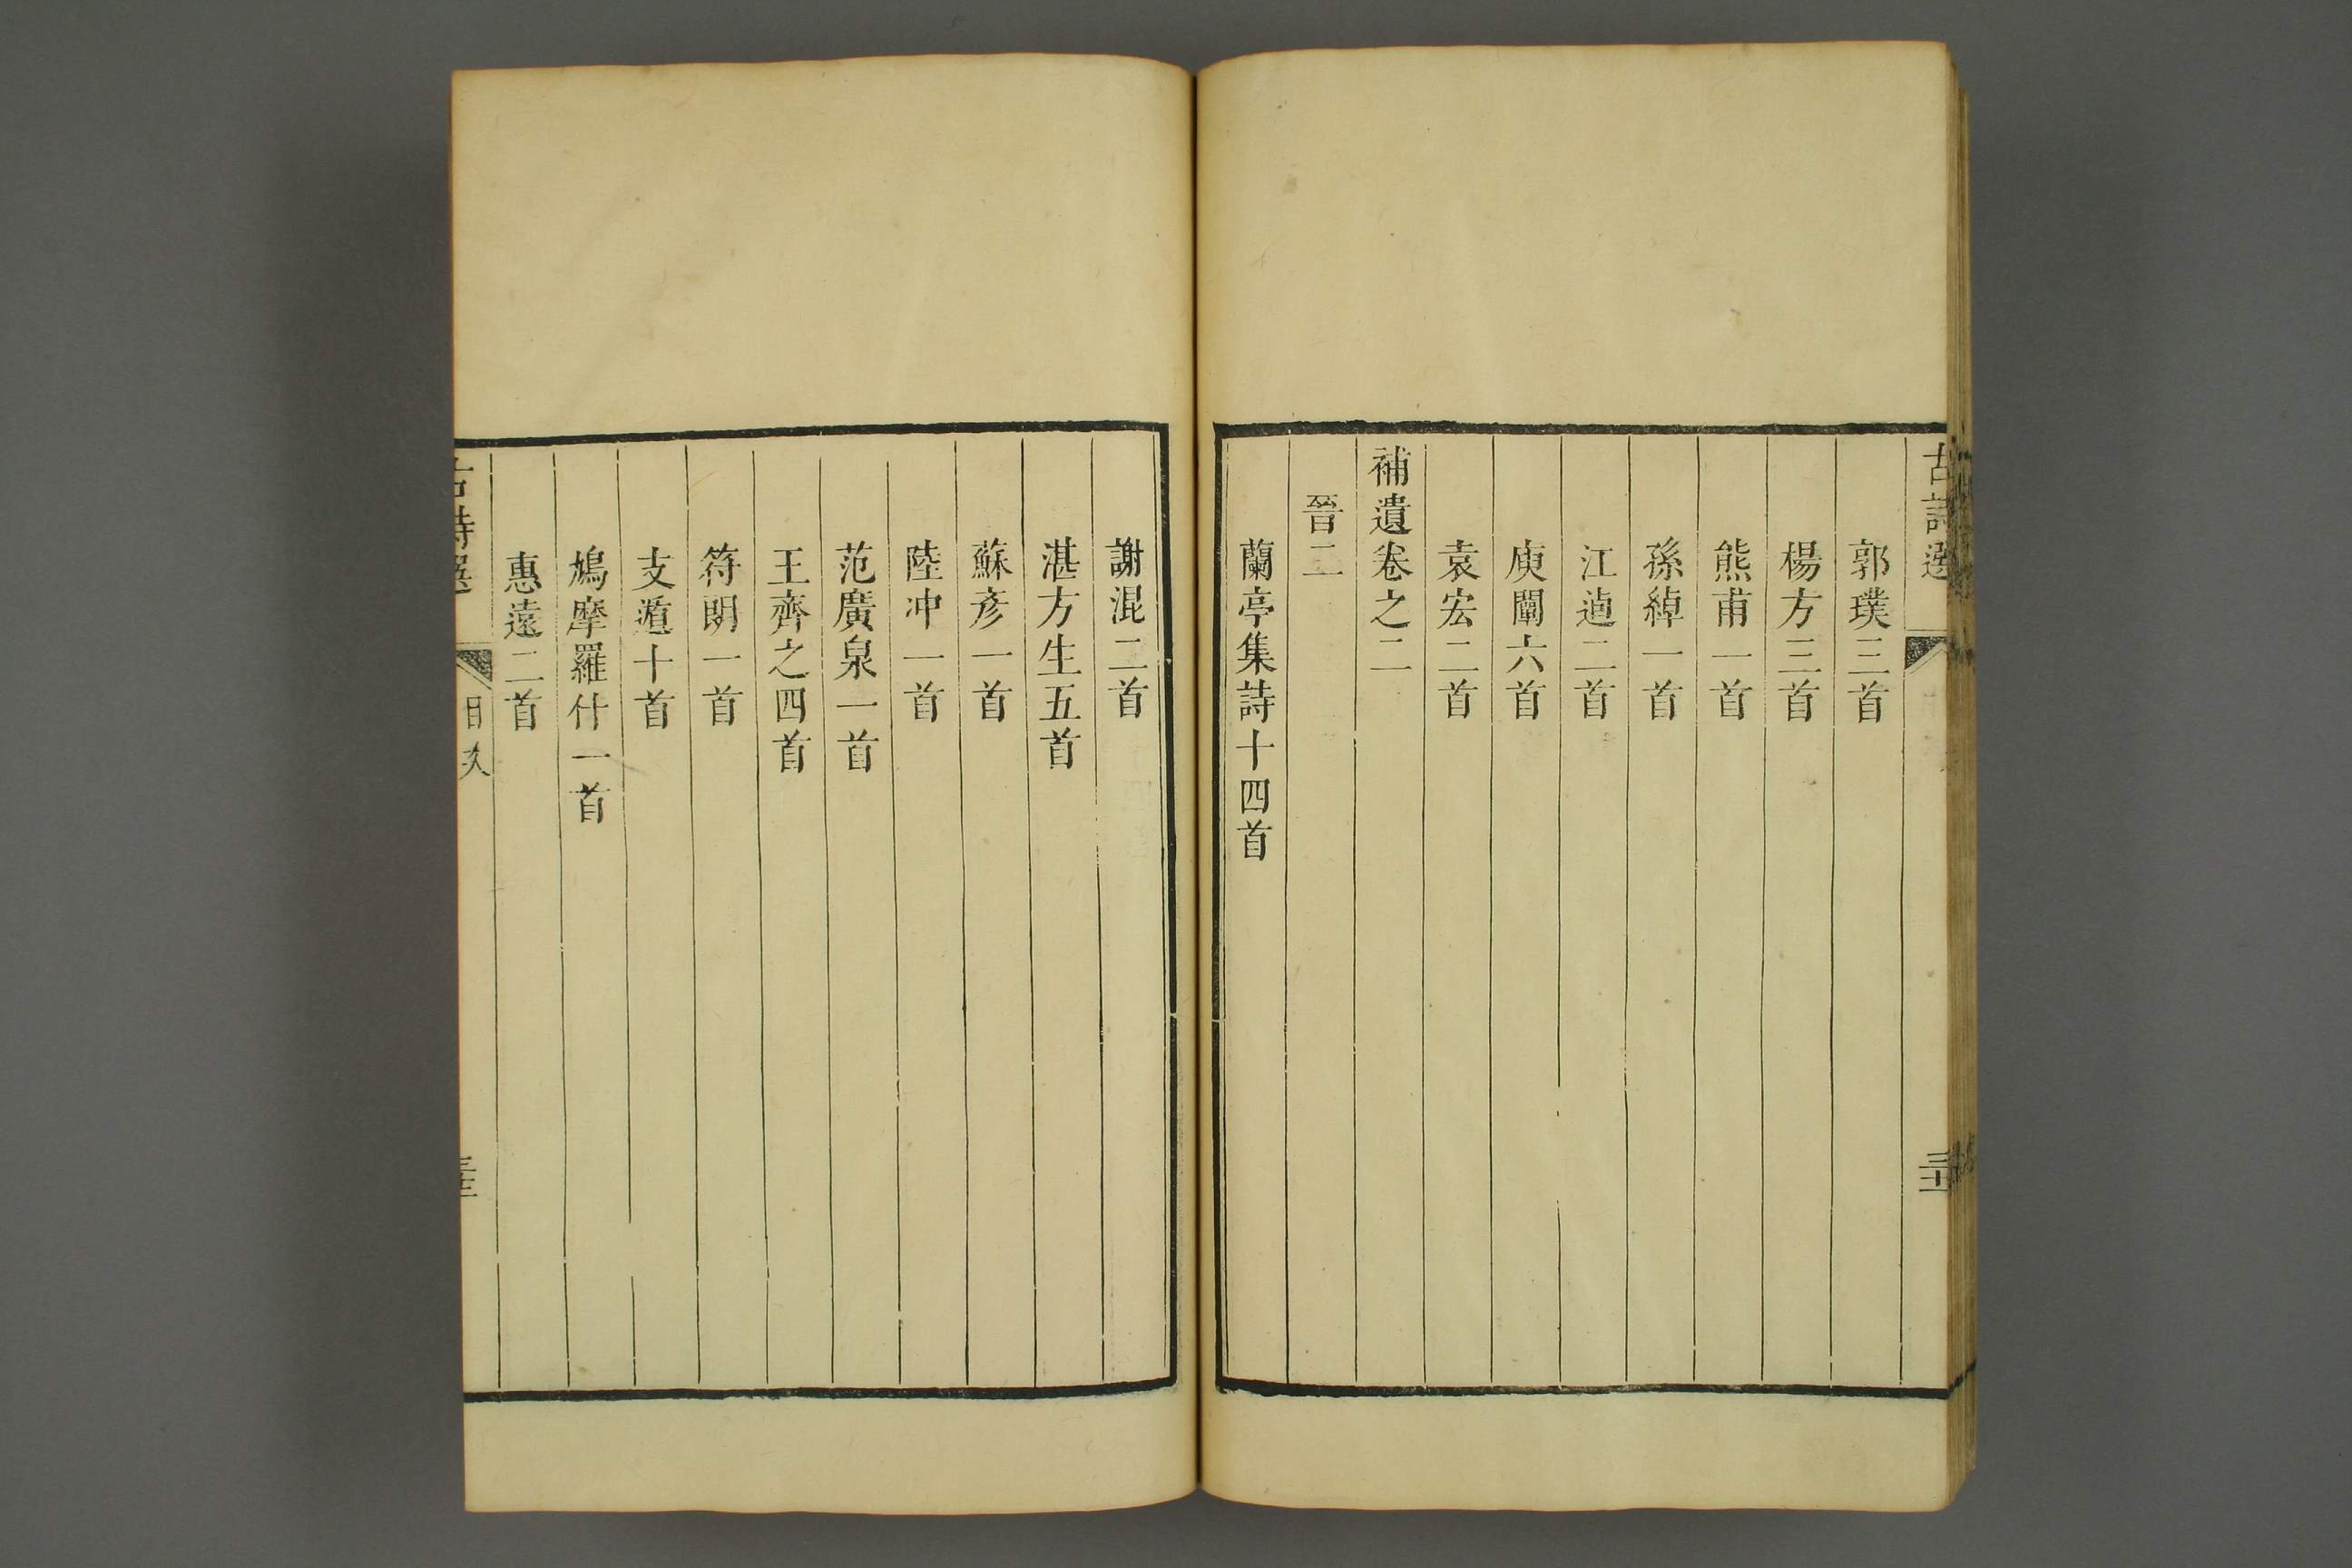 古詩選
郭璞三首
楊方三首
熊甫一首
孫綽一首
江逌二首
庾闡六首
袁宏二首
補遺卷之二
晉二
蘭亭集詩十四首
謝混二首
湛方生五首
蘇彥一首
陸冲一首
范廣泉一首
王齊之四首
符朗一首
支遁十首
鳩摩羅什一首
惠遠二首
古詩選
目次